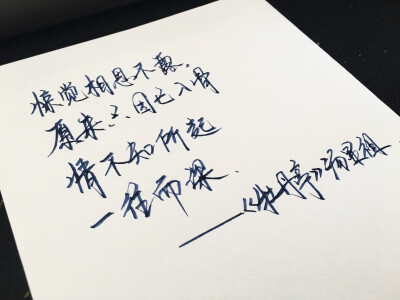 惊觉相思不露,
原来只因已入骨
情不知所起
一往而深.
——《牡丹亭》汤显祖